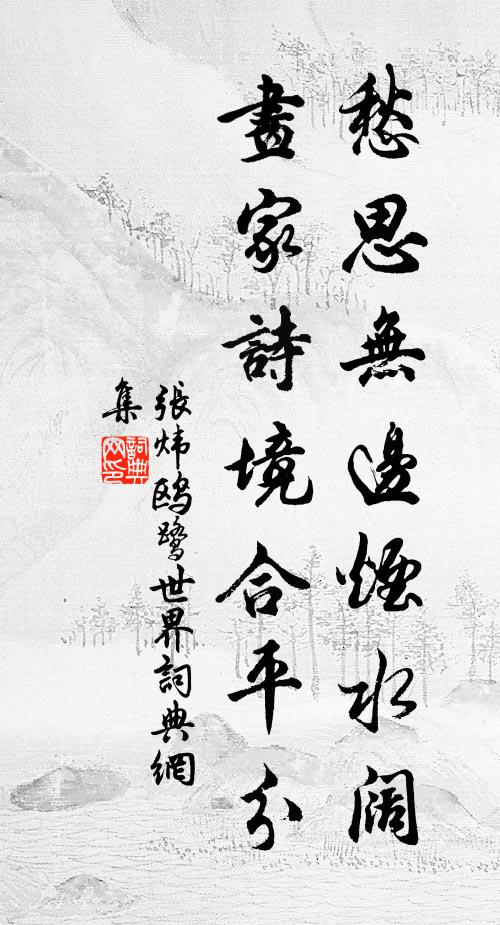 愁思無邊煙水阔
畫家詩境合平分
張炜鸥鹭世界詞典網
集
詞典网印